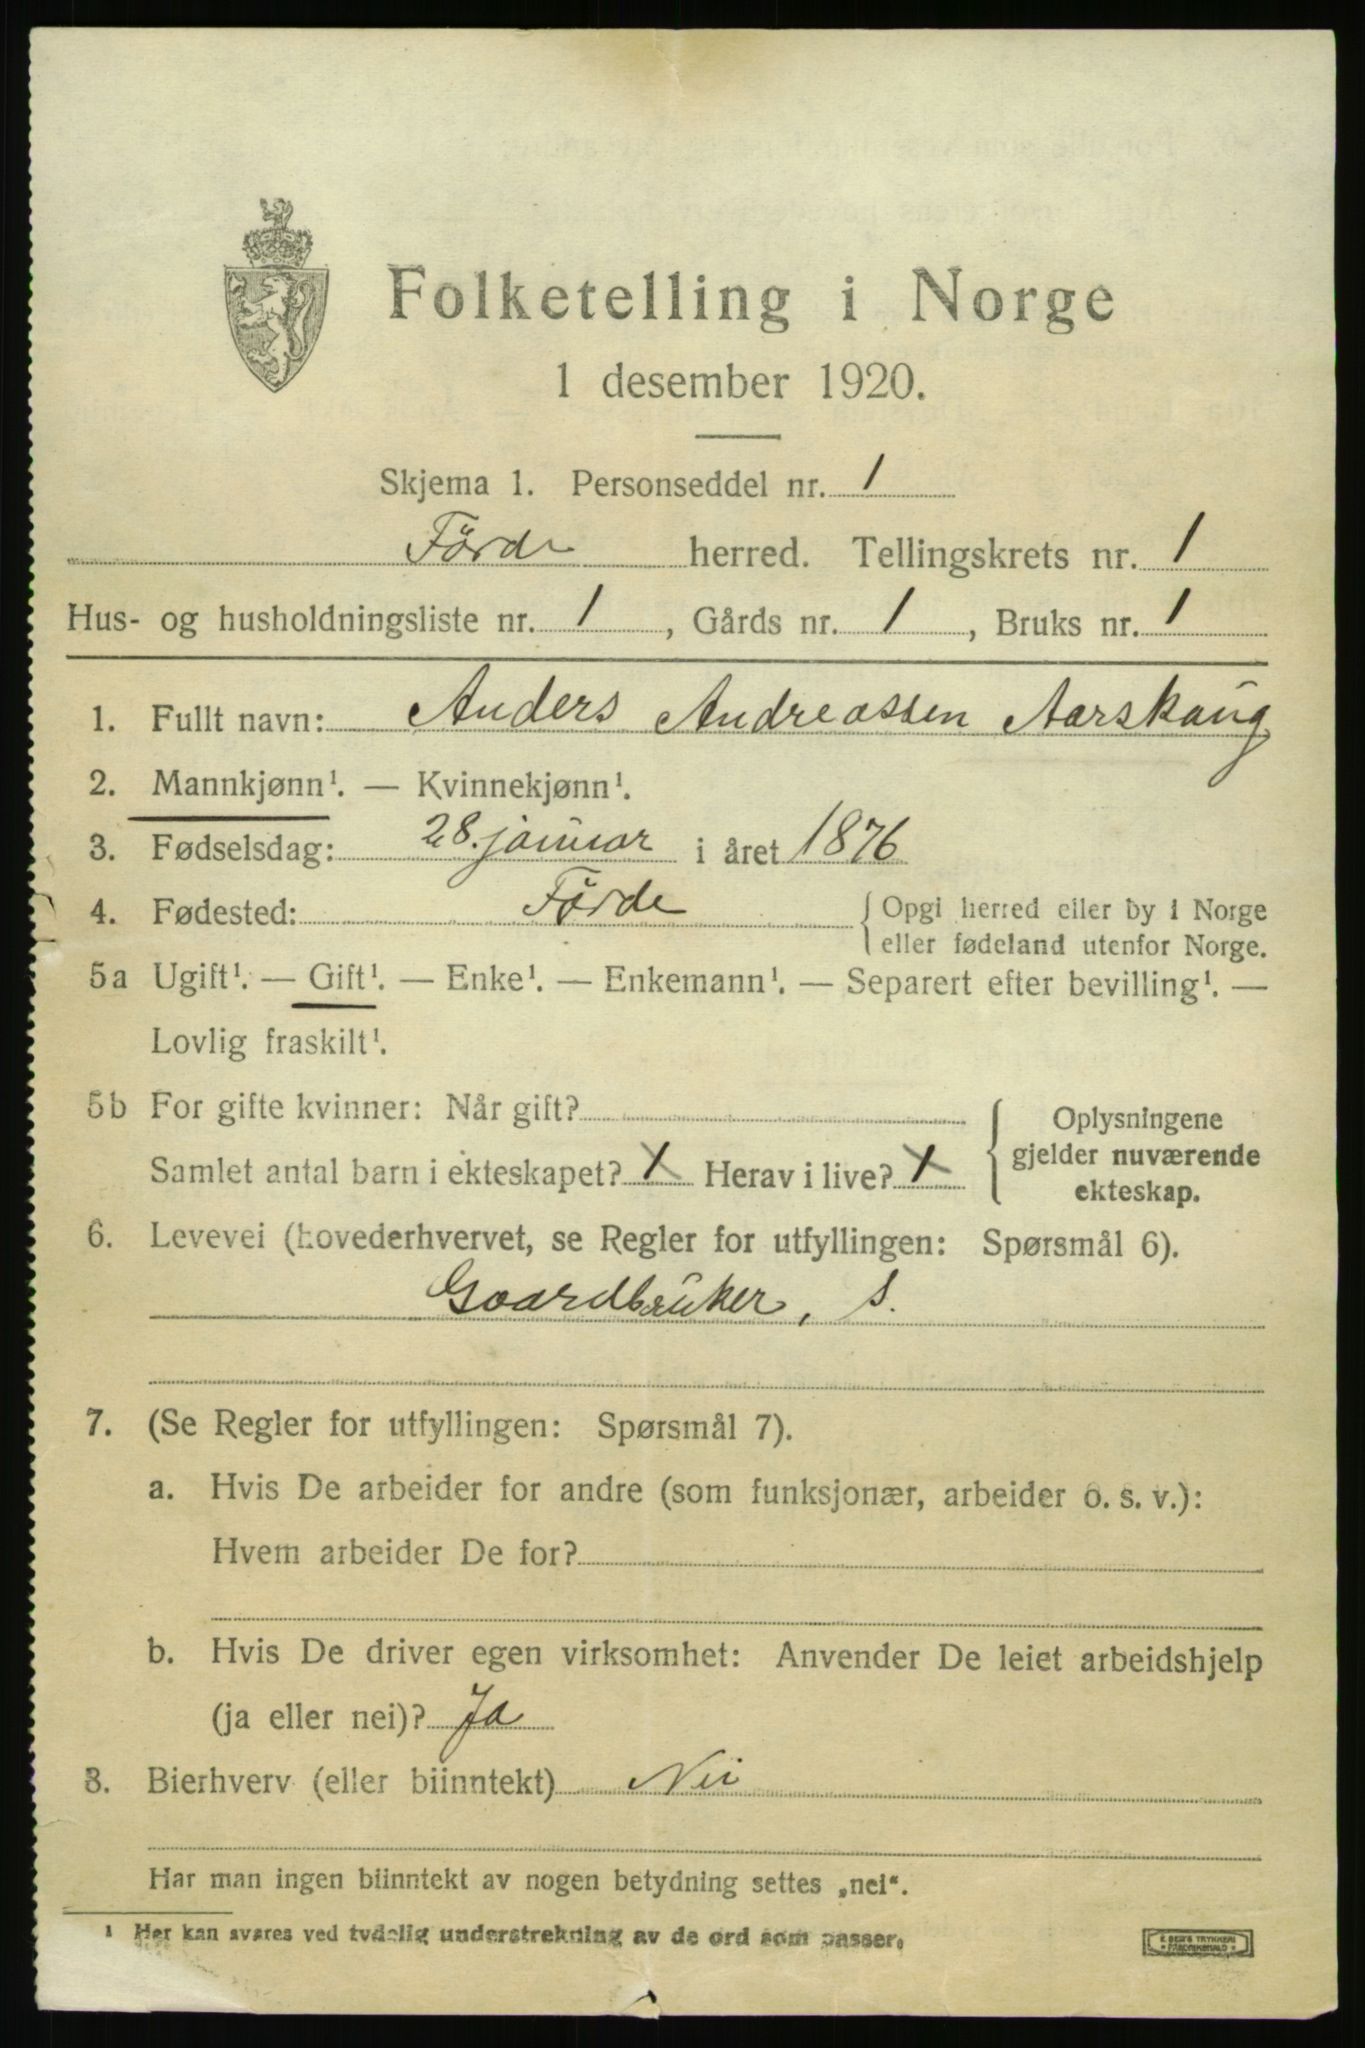 Folketelling i Norge
1 desember 1920.
Skjema 1. Personseddel nr. 1
Førde herred. Tellingskrets nr. 1
Hus- og husholdningsliste nr. 1, Gårds nr. 1, Bruks nr. 1
1. Fullt navn: Anders Andreassen Aarskaug
2. Mannkjønn¹. — Kvinnekjønn¹.
3. Fødselsdag: 28. januar i året 1876
4. Fødested: Førde { Opgi herred eller by i Norge
eller fødeland utenfor Norge.
5a Ugift¹. — Gift¹. — Enke¹. — Enkemann¹. — Separert efter bevilling¹. —
Lovlig fraskilt¹.
5b For gifte kvinner: Når gift?
Samlet antal barn i ekteskapet? 1 Herav i live? 1
{ Oplysningene
gjelder nuværende
ekteskap.
6. Levevei (hovederhvervet, se Regler for utfyllingen: Spørsmål 6).
Gaardbruker, s.
7. (Se Regler for utfyllingen: Spørsmål 7).
a. Hvis De arbeider for andre (som funksjonær, arbeider o. s. v.):
Hvem arbeider De for?
b. Hvis De driver egen virksomhet: Anvender De leiet arbeidshjelp
(ja eller nei)? Ja
8. Bierhverv (eller biinntekt) Nei
Har man ingen biinntekt av nogen betydning settes „nei“.
¹ Her kan svares ved tydelig understrekning av de ord som passer.